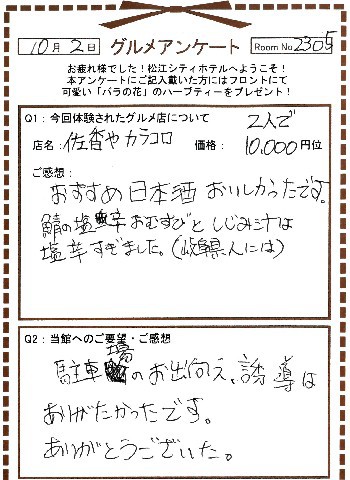 10月2日 グルメアンケート Room No 2305
お疲れ様でした！松江シティホテルへようこそ！
本アンケートにご記入戴いた方にはフロントにて
可愛い「バラの花」のハーブティーをプレゼント！
Q1：今回体験されたグルメ店について 2人で
店名：佐香や カラコロ 価格：10,000円位
ご感想：
おすすめ日本酒おいしかったです。
鯖の塩辛おむすびとしじみ汁は
塩辛すぎました。（岐阜県人には）
Q2：当館へのご要望・ご感想
駐車場のお出向え、誘導は
ありがたかったです。
ありがとうございた。